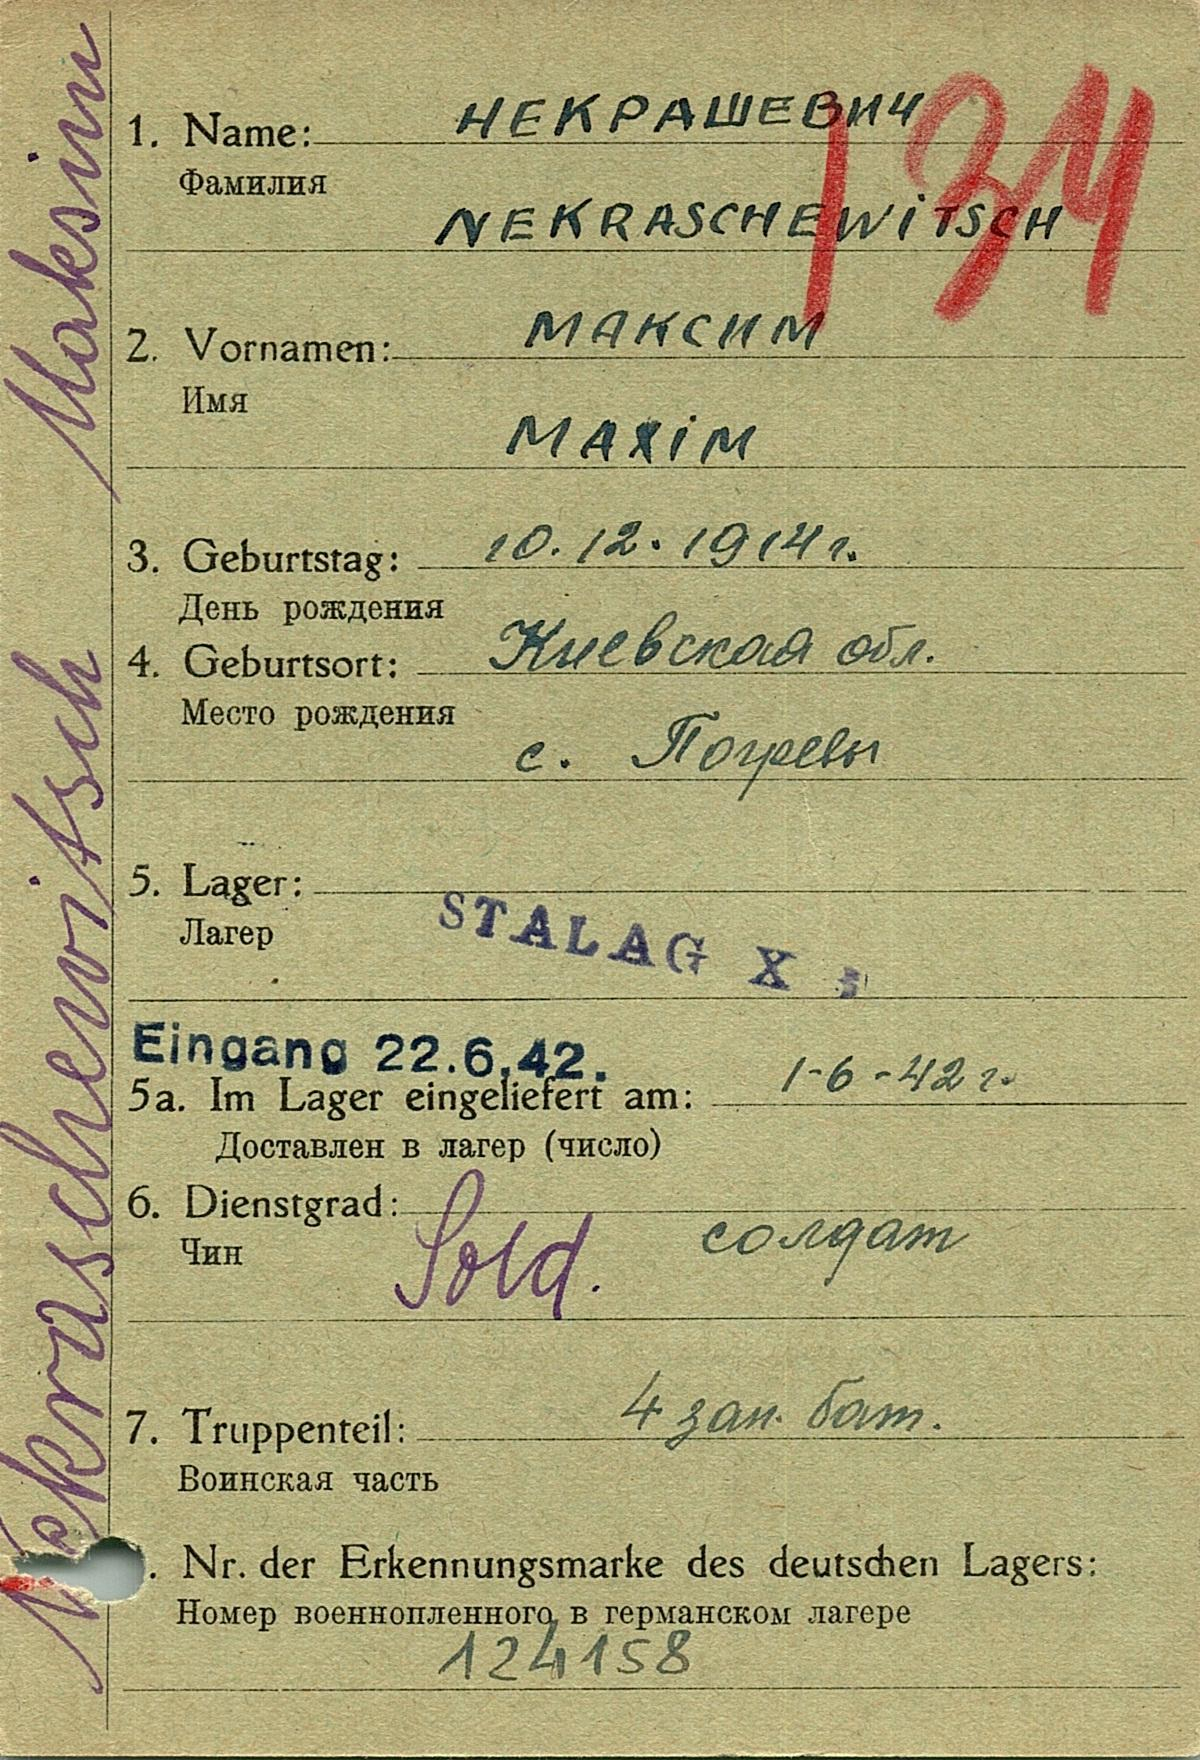 Nekraschewitsch Maksim
134
1. Name: НЕКРАШЕВИЧ
Фамилия
NEKRASCHEWiTSCH
2. Vornamen: МАКСИМ
Имя
MAXiM
3. Geburtstag: 10.12.1914 г.
День рождения
4. Geburtsort: Киевская обл.
Место рождения
с. Погребы
5. Lager:
Лагер
STALAG X
Eingang 22.6.42.
5a. Im Lager eingeliefert am: 1-6-42 г.
Доставлен в лагер (число)
6. Dienstgrad:
Чин
Sold. солдат
7. Truppenteil: 4 зап. бат.
Воинская часть
. Nr. der Erkennungsmarke des deutschen Lagers:
Номер военнопленного в германском лагере
124158